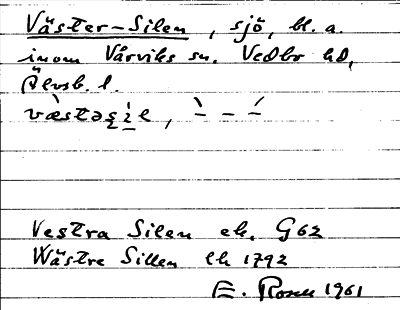 Väster-Silen, sjö, bl. a.
inom Vårviks sn. Vedbo hd,
Älvsb. l.
Vestra Silen ek. G62
Wästre Sillen lk 1792
E. Rosell 1961